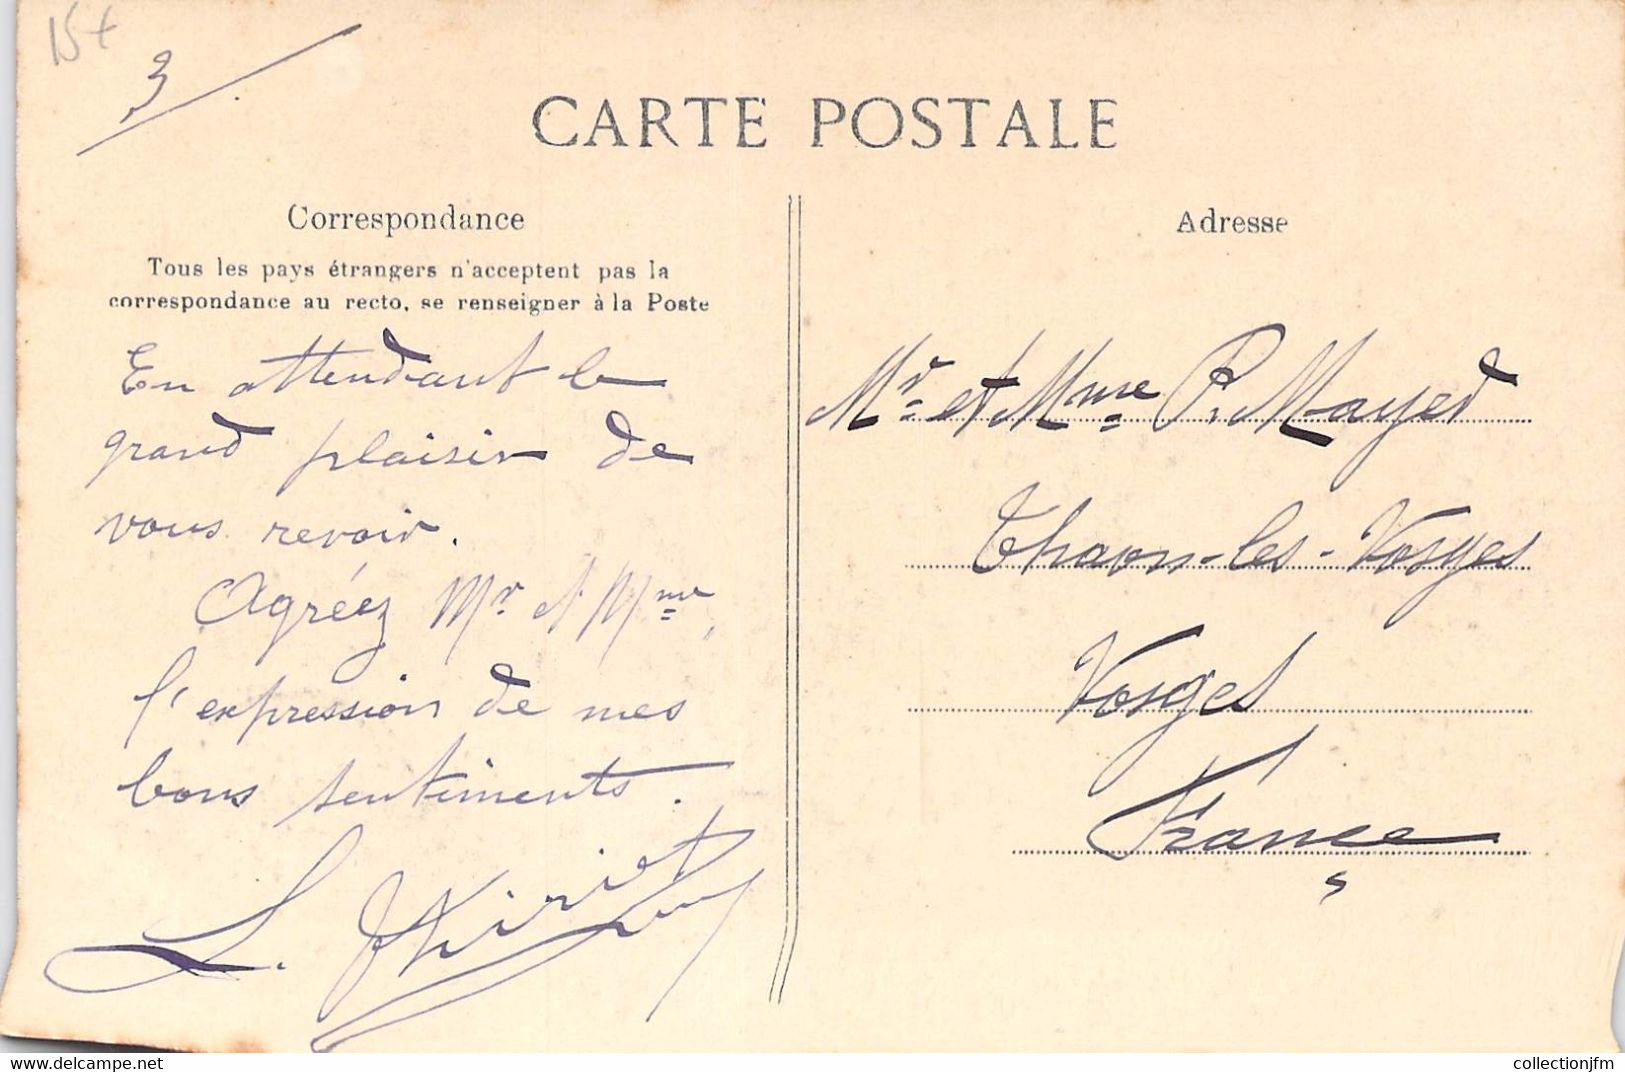 15 +
3
CARTE POSTALE
Correspondance
Tous les pays étrangers n'acceptent pas la
correspondance au recto, se renseigner à la Poste
En attendant le
grand plaisir de
vous revoir.
Agréez Mr et Mme,
l'expression de mes
bons sentiments.
L. Thiriet
Adresse
Mr et Mme P. Mayer
Thaon-les-Vosges
Vosges
France
collectionjfm